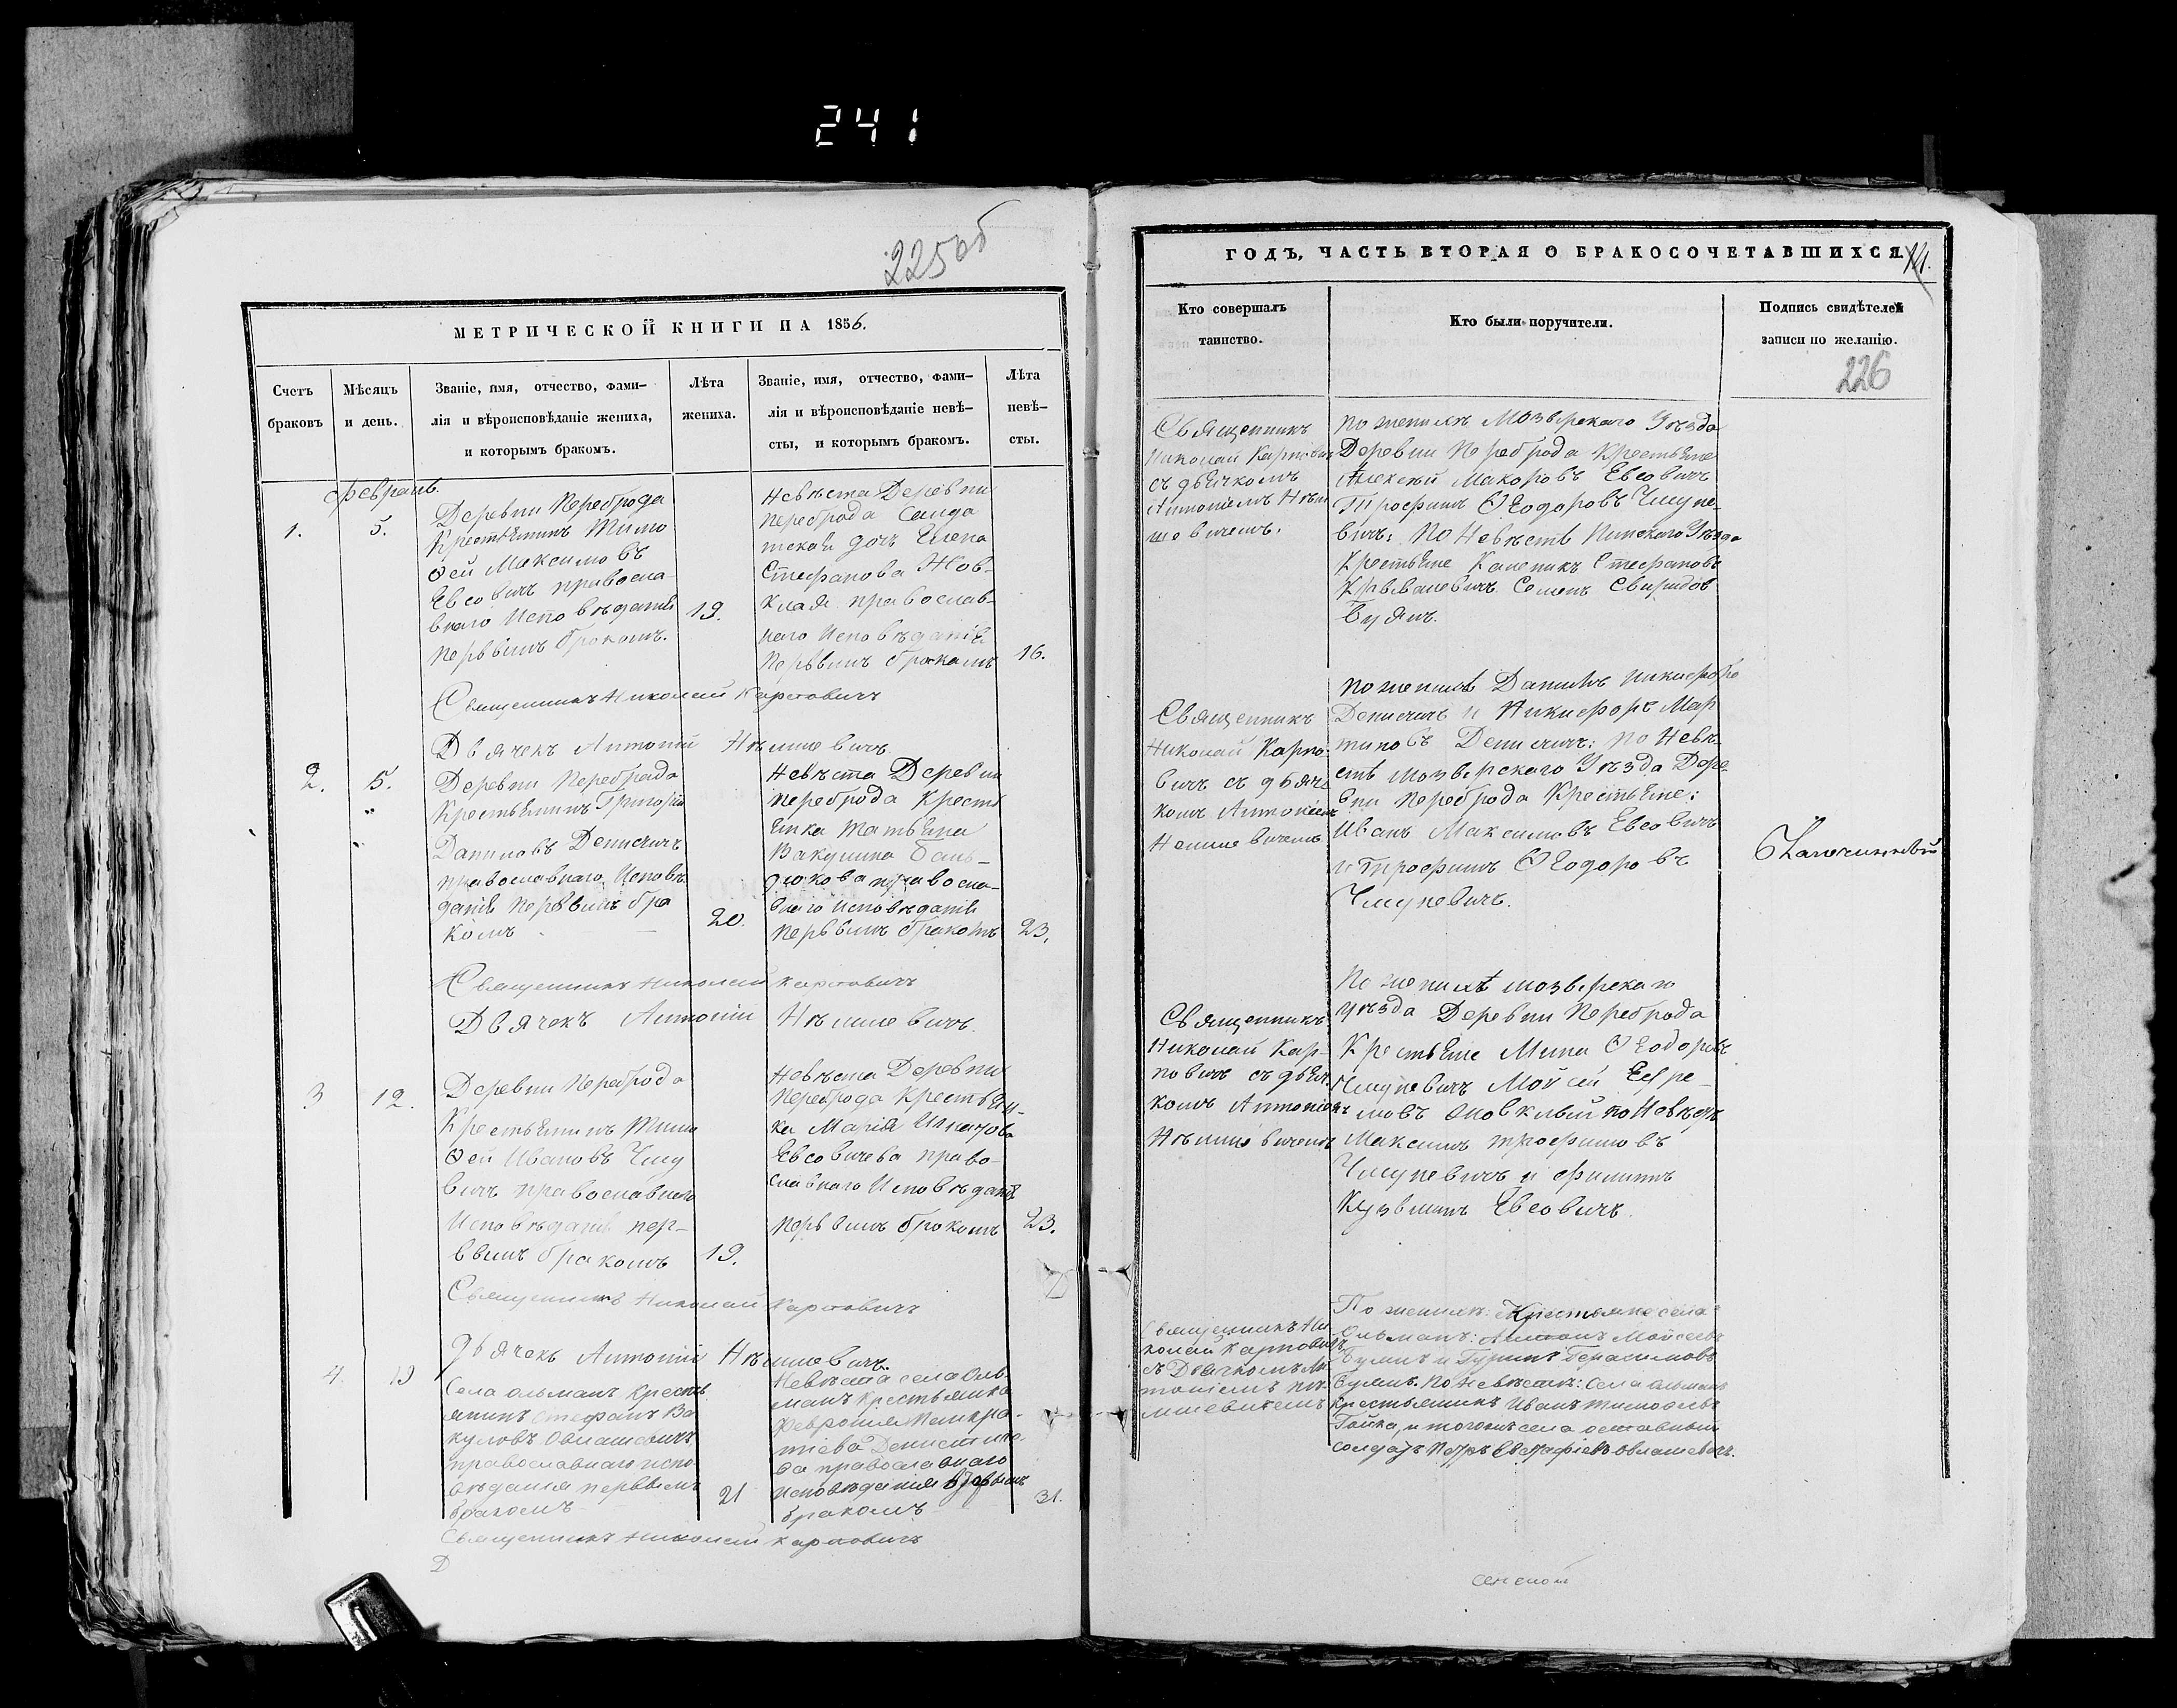 241
225об
МЕТРИЧЕСКОЙ КНИГИ НА 1856.
Счетъ
браковъ
Мѣсяцъ
и день.
Званіе, имя, отчество, фами-
лія и вѣроисповѣданіе жениха,
и которымъ бракомъ.
Лѣта
жениха.
Званіе, имя, отчество, фами-
лія и вѣроисповѣданіе невѣ-
сты, и которымъ бракомъ.
Лѣта
невѣ-
сты.
февраль.
1.
5.
Деревни Переброда
Крестьянинъ Тимо
ѳей Максимовъ
Евсовичъ правосла-
внаго Исповѣданія
Первымъ бракомъ.
19.
Невѣста Деревни
Переброда Солда
тская дочь Елена
Стефанова Жов-
клая православ-
наго Исповѣданія
Первымъ бракомъ
16.
Священникъ Николай Карповичъ
Дьячекъ Антоній Нѣмшевичъ
2.
5.
Деревни Переброда
Крестьянинъ Григорій
Даниловъ Денисчичъ
православнаго Исповѣ
данія Первымъ бра
комъ
20.
Невѣста Деревни
Переброда Кресть
янка Татьяна
Вакулина
правосла-
внаго Исповѣданія
Первымъ бракомъ
23.
Священникъ Николай Карповичъ
Дьячекъ Антоній Нѣмшевичъ.
3
12.
Деревни Переброда
Крестьянинъ Тимо
ѳей Ивановъ
вичъ православнаго
Исповѣданія пер-
вымъ бракомъ
19.
Невѣста Деревни
Переброда Крестьян-
ка Марія Игнатова
Евсовичева право-
славнаго Исповѣданія
первымъ бракомъ
23.
Священникъ Николай Карповичъ
Дьячекъ Антоній Нѣмшевичъ.
4.
Села Ольманъ Кресть
янинъ Стефанъ Ва
куловъ Овлашевичъ
православнаго испо
вѣданія первымъ
бракомъ
21
Невѣста села Оль-
манъ крестьянка
Февронія Панкра-
тіева
ва православнаго
исповѣданія вторымъ
бракомъ
31.
Священникъ Николай Карповичъ
Д
ГОДЪ, ЧАСТЬ ВТОРАЯ О БРАКОСОЧЕТАВШИХСЯ.
Кто совершалъ
таинство.
Кто были поручители.
Подпись свидѣтелей
записи по желанію.
226
Священникъ
Николай Карповичъ
съ дьячкомъ
Антоніемъ Нѣм
шевичемъ.
По женихѣ Мозырскаго Уѣзда
Деревни Переброда Крестьяне
Алексѣй Макаровъ Евсовичъ
Трофимъ Ѳеодоровъ Чмуне-
вичъ: По Невѣстѣ Пинскаго Уѣзда
Крестьяне Каленикъ Стефановъ
Семенъ Свиридов
Буянъ.
Священникъ
Николай Карпо-
вичъ съ дьяч
комъ Антоніемъ
Немшевичемъ
По женихѣ Данилъ Никифоро
Денисчичъ и Никифоръ Мар
тиновъ Денисчичъ: по Невѣ-
стѣ Мозырскаго Уѣзда Дере-
вни Переброда Крестьяне:
Иванъ Максимовъ Евсовичъ
и Трофимъ Ѳеодоровъ
Чмуневичъ.
Священникъ
Николай Кар-
повичъ съ дьяч
комъ Антоніемъ
Нѣмшевичемъ
По женихѣ Мозырскаго
Уѣзда Деревни Переброда
Крестьяне Мина Ѳеодоровъ
Чмуневичъ Мойсей Ефре-
мовъ по Невѣстѣ
Максимъ Трофимовъ
Чмуневичъ и Филиппъ
Кузьминъ Евсовичъ.
Священникъ Ни-
колай Карповичъ
съ Дьячкомъ Ан-
тоніемъ Нѣ-
мшевичемъ
По женихѣ: Крестьяне села
Ольманъ: Антонъ Мойсеевъ
Буянъ и Гуринъ Герасимовъ
Буянъ. По Невѣстѣ: села Ольманъ
Крестьянинъ Иванъ Тимофеевъ
Гайко, и тогожъ села отставный
солдатъ Петръ Евстафіевъ Овлашевичъ.